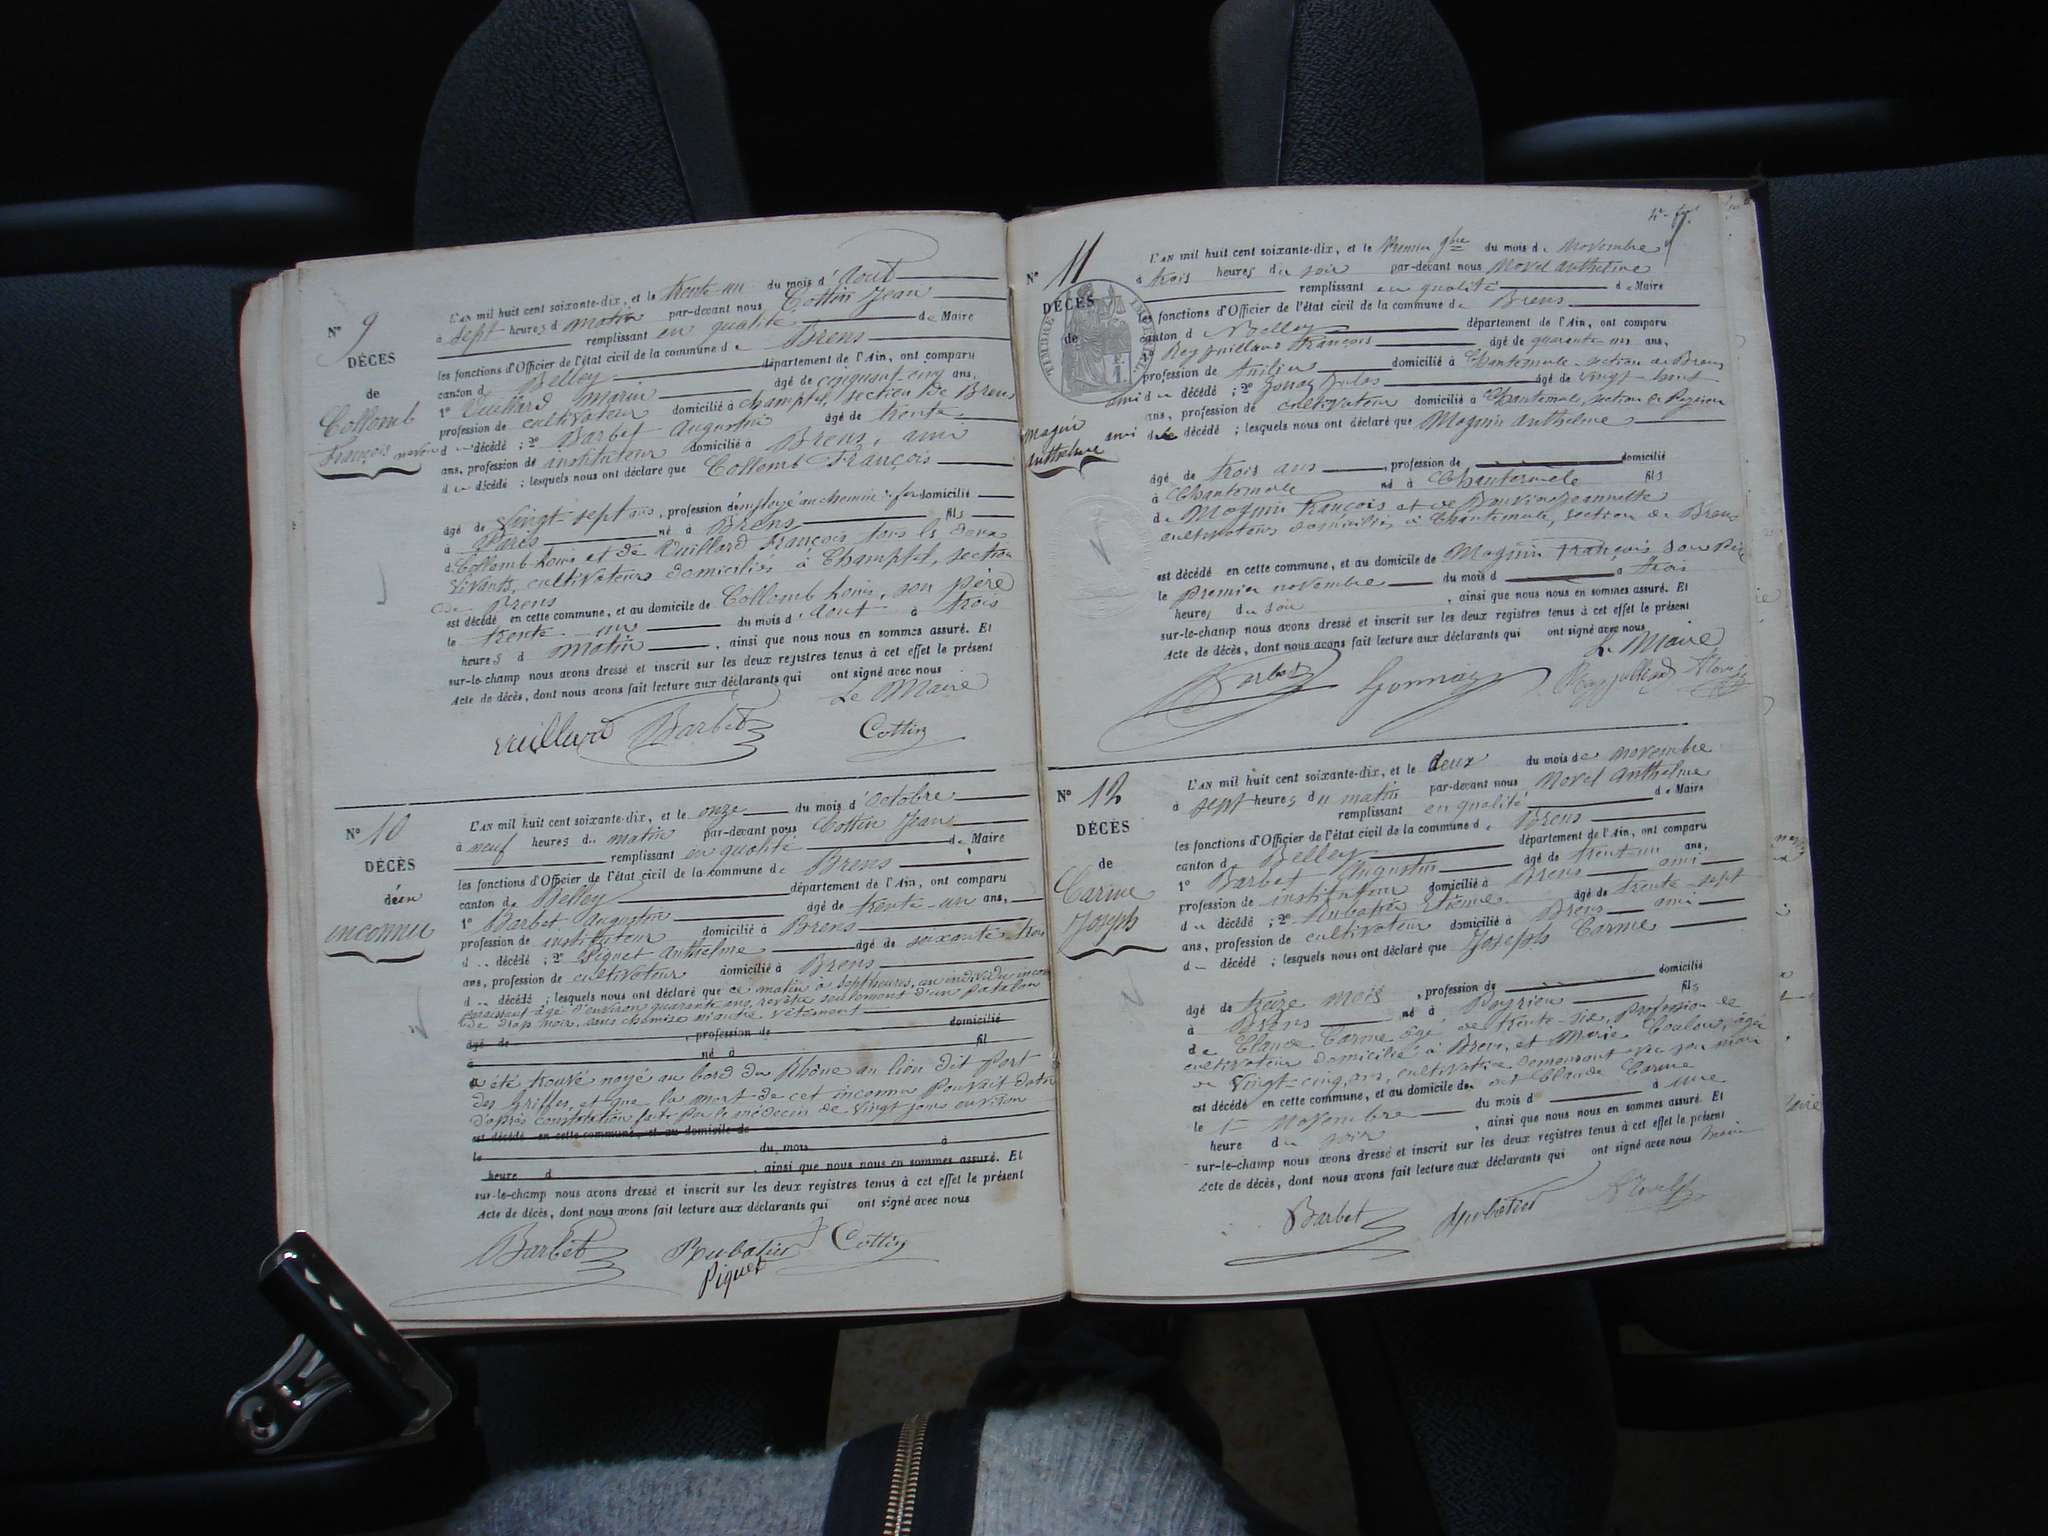 N° 9
DÉCÈS
de
Collomb
François
L'AN mil huit cent soixante-dix, et le trente-un du mois d'Aout
à sept heures d matin par-devant nous Cottin Jean
remplissant en qualité de Maire
les fonctions d'Officier de l'état civil de la commune d Brens
canton d Belley département de l'Ain, ont comparu
1° Vuillard Marin âgé de cinquant cinq ans,
profession de cultivateur domicilié à Champtel, section de Brens
d décédé ; 2° Barbet Augustin âgé de trente
ans, profession de instituteur domicilié à Brens, ami
d u décédé ; lesquels nous ont déclaré que Collomb François
âgé de Vingt-sept ans, profession d'employé au chemin de fer domicilié
à Paris né à Brens fils
d Collomb Louis et de Vuillard François tous les deux
vivants, cultivateurs domiciliés à Champtel, section
de Brens
est décédé en cette commune, et au domicile de Collomb Louis, son père
le trente-un du mois d'aout à trois
heures d matin, ainsi que nous nous en sommes assuré. Et
sur-le-champ nous avons dressé et inscrit sur les deux registres tenus à cet effet le présent
Acte de décès, dont nous avons fait lecture aux déclarants qui ont signé avec nous
Le Maire
Vuillard Barbet Cottin
N° 10
DÉCÈS
d'un
inconnu
L'AN mil huit cent soixante-dix, et le onze du mois d'Octobre
à neuf heures du matin par-devant nous Cottin Jean
remplissant en qualité de Maire
les fonctions d'Officier de l'état civil de la commune de Brens
canton de Belley département de l'Ain, ont comparu
1° Barbet Augustin âgé de trente-un ans,
profession de instituteur domicilié à Brens
d décédé ; 2° Piquet Anthelme âgé de soixante trois
ans, profession de cultivateur domicilié à Brens
d décédé ; lesquels nous ont déclaré que ce matin à sept heures, un individu inconnu
paraissant âgé d'environ quarante ans, revêtu seulement d'un patalon
de drap noir, sans chemise ni autre vêtement
âgé de , profession de domicilié
à né à fil
a été trouvé noyé au bord du Rhône au lieu dit Port
des Griffes, et que la mort de cet inconnu pouvait dater
d'après constatation faite par le médecin de vingt jours environ
est décédé en cette commune, et au domicile de
le du mois à
heure d , ainsi que nous nous en sommes assuré. Et
sur-le-champ nous avons dressé et inscrit sur les deux registres tenus à cet effet le présent
Acte de décès, dont nous avons fait lecture aux déclarants qui ont signé avec nous
Barbet Cottin
Piquet
N° 11
DÉCÈS
de
Magnin
Anthelme
TIMBRE IMPÉRIAL
L'AN mil huit cent soixante-dix, et le Premier 9bre du mois de Novembre
à trois heures du soir par-devant nous Novel Anthelme
remplissant en qualité de Maire
les fonctions d'Officier de l'état civil de la commune de Brens
canton d Belley département de l'Ain, ont comparu
1° Reyjuilland François âgé de quarante ans,
profession de domicilié à Chantemerle section de Brens
ami du décédé ; 2° Gonnay Jules âgé de vingt-huit
ans, profession de cultivateur domicilié à Chantemerle, section de Peyrieu
ami d décédé ; lesquels nous ont déclaré que Magnin Anthelme
âgé de trois ans, profession de domicilié
à Chantemerle né à Chantemerle fils
de Magnin François et de Bouvier Jeannette
cultivateurs domiciliés à Chantemerle, section de Brens
est décédé en cette commune, et au domicile de Magnin François, son Père
le premier novembre du mois d à trois
heures du soir, ainsi que nous nous en sommes assuré. Et
sur-le-champ nous avons dressé et inscrit sur les deux registres tenus à cet effet le présent
Acte de décès, dont nous avons fait lecture aux déclarants qui ont signé avec nous
Le Maire
Barbet Gonnay Reyjuilland Novel
N° 12
DÉCÈS
de
Carme
Joseph
L'AN mil huit cent soixante-dix, et le deux du mois de novembre
à sept heures du matin par-devant nous Novel Anthelme
remplissant en qualité de Maire
les fonctions d'Officier de l'état civil de la commune d Brens
canton d Belley département de l'Ain, ont comparu
1° Barbet Augustin âgé de trent-un ans,
profession de instituteur domicilié à Brens ami
d u décédé ; 2° Etienne âgé de trente-sept
ans, profession de cultivateur domicilié à Brens ami
d décédé ; lesquels nous ont déclaré que Joseph Carme
âgé de treize mois, profession de domicilié
à Brens né à Peyrieu fils
de Claude Carme âgé de trente-six, Profession de
cultivateur domicilié à Brens, et Marie Coulon, âgée
de vingt-cinq ans, cultivatrice demeurant avec son mari
est décédé en cette commune, et au domicile de dit Claude Carme
le 1er Novembre du mois d à une
heure du soir, ainsi que nous nous en sommes assuré. Et
sur-le-champ nous avons dressé et inscrit sur les deux registres tenus à cet effet le présent
Acte de décès, dont nous avons fait lecture aux déclarants qui ont signé avec nous maire
Barbet Novel